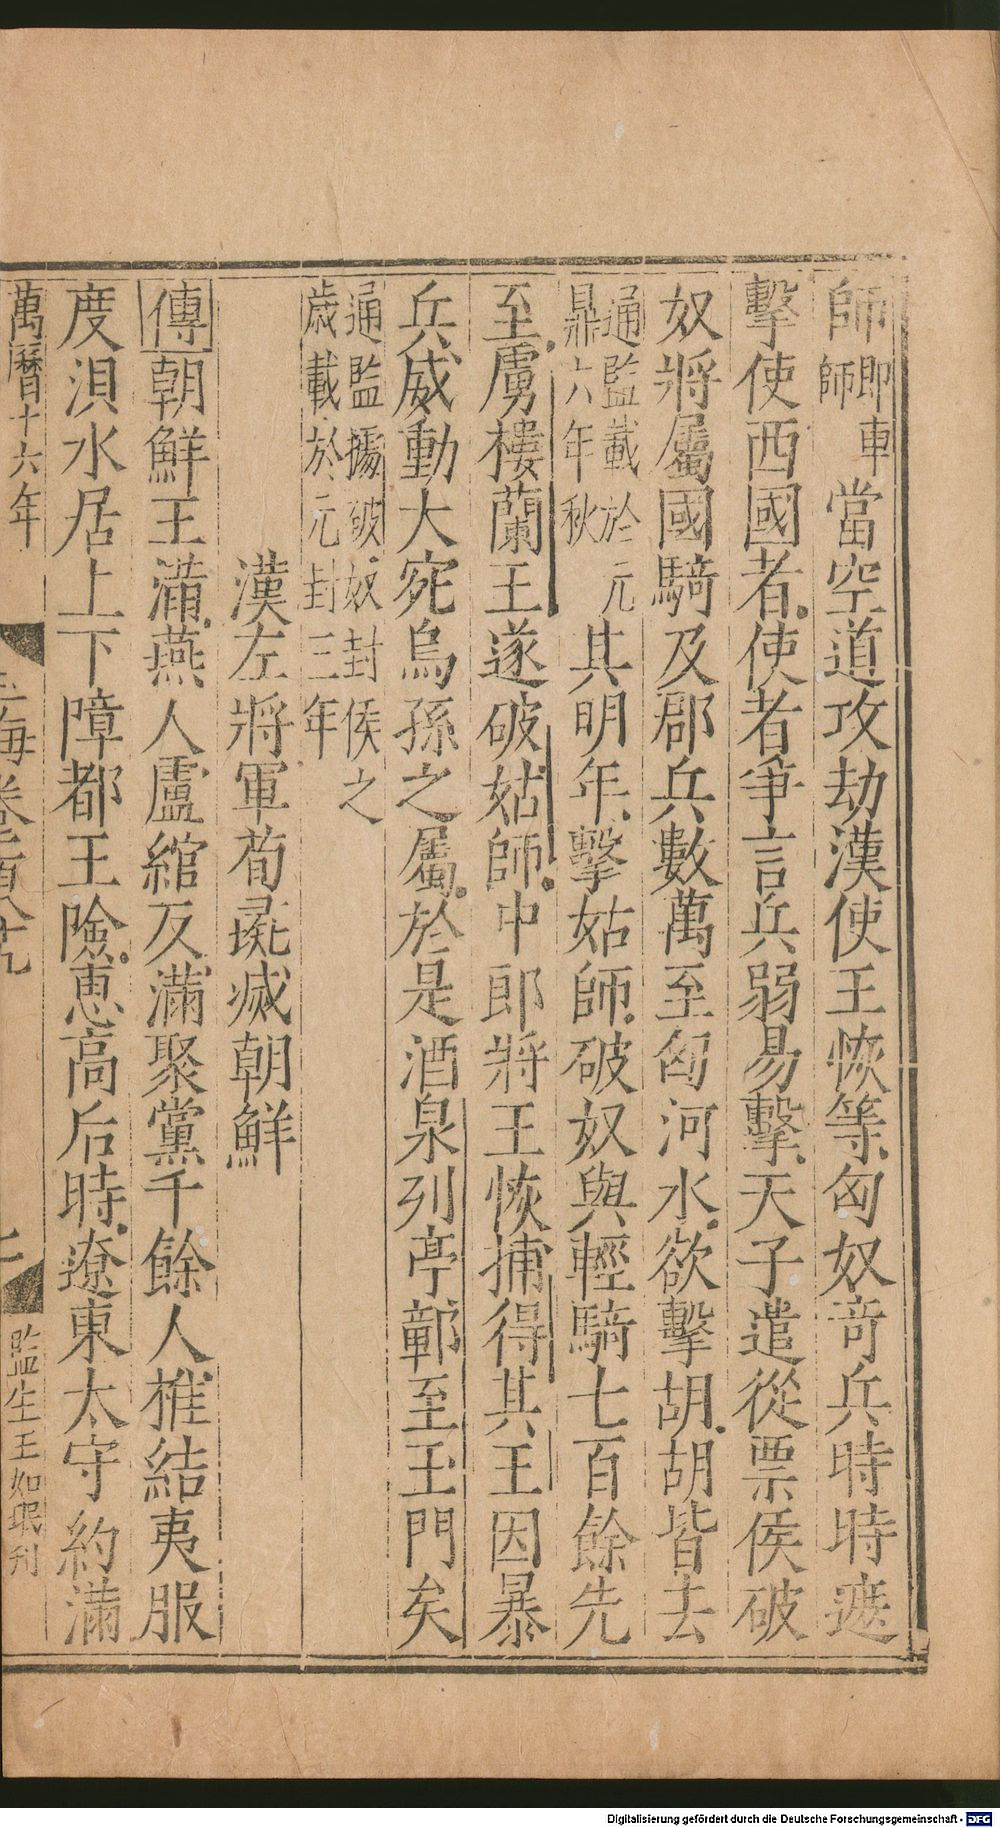 師即車師當空道攻劫漢使王恢等匈奴竒兵時時遮
擊使西國者使者爭言兵弱易擊天子遣從票侯破
奴將屬國騎及郡兵數萬至匈河水欲擊胡胡皆去
通監載於元鼎六年秋其明年擊姑師破奴與輕騎七百餘先
至虜樓蘭王遂破姑師中郎將王恢捕得其王因暴
兵威動大宛烏孫之屬於是酒泉列亭鄣至玉門矣
通監據破奴封侯之
歲載於元封三年
漢左將軍荀彘滅朝鮮
傳朝鮮王滿燕人盧綰反滿聚黨千餘人椎結夷服
度浿水居上下障都王險惠高后時遼東太守約滿
萬曆十六年
玉海卷一百八十九
監生王如珉刊
Digitalisierung gefördert durch die Deutsche Forschungsgemeinschaft - DFG